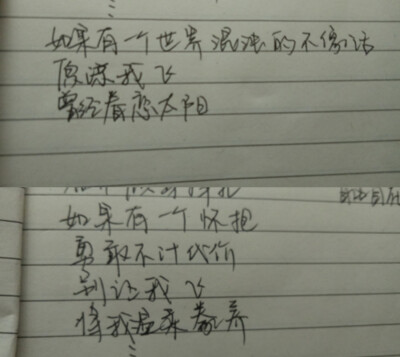 如果有一个世界混浊的不像话
原谅我飞
曾经眷恋太阳
如果有一个怀抱
勇敢不计代价
别让我飞
将我温柔豢养